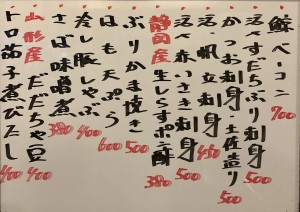 鯨ベーコン 700
活〆すだちぶり刺身 500
かつお刺身・土佐造り 500
活・帆立刺身 450
活〆赤いさき刺身 500
静岡産 生しらすポン酢 380
ぶりかま焼き 500
はも天ぷら 600
冷し豚しゃぶ 400
さば味噌煮 380
山形産 だだちゃ豆 400
トロ茄子煮びたし 400